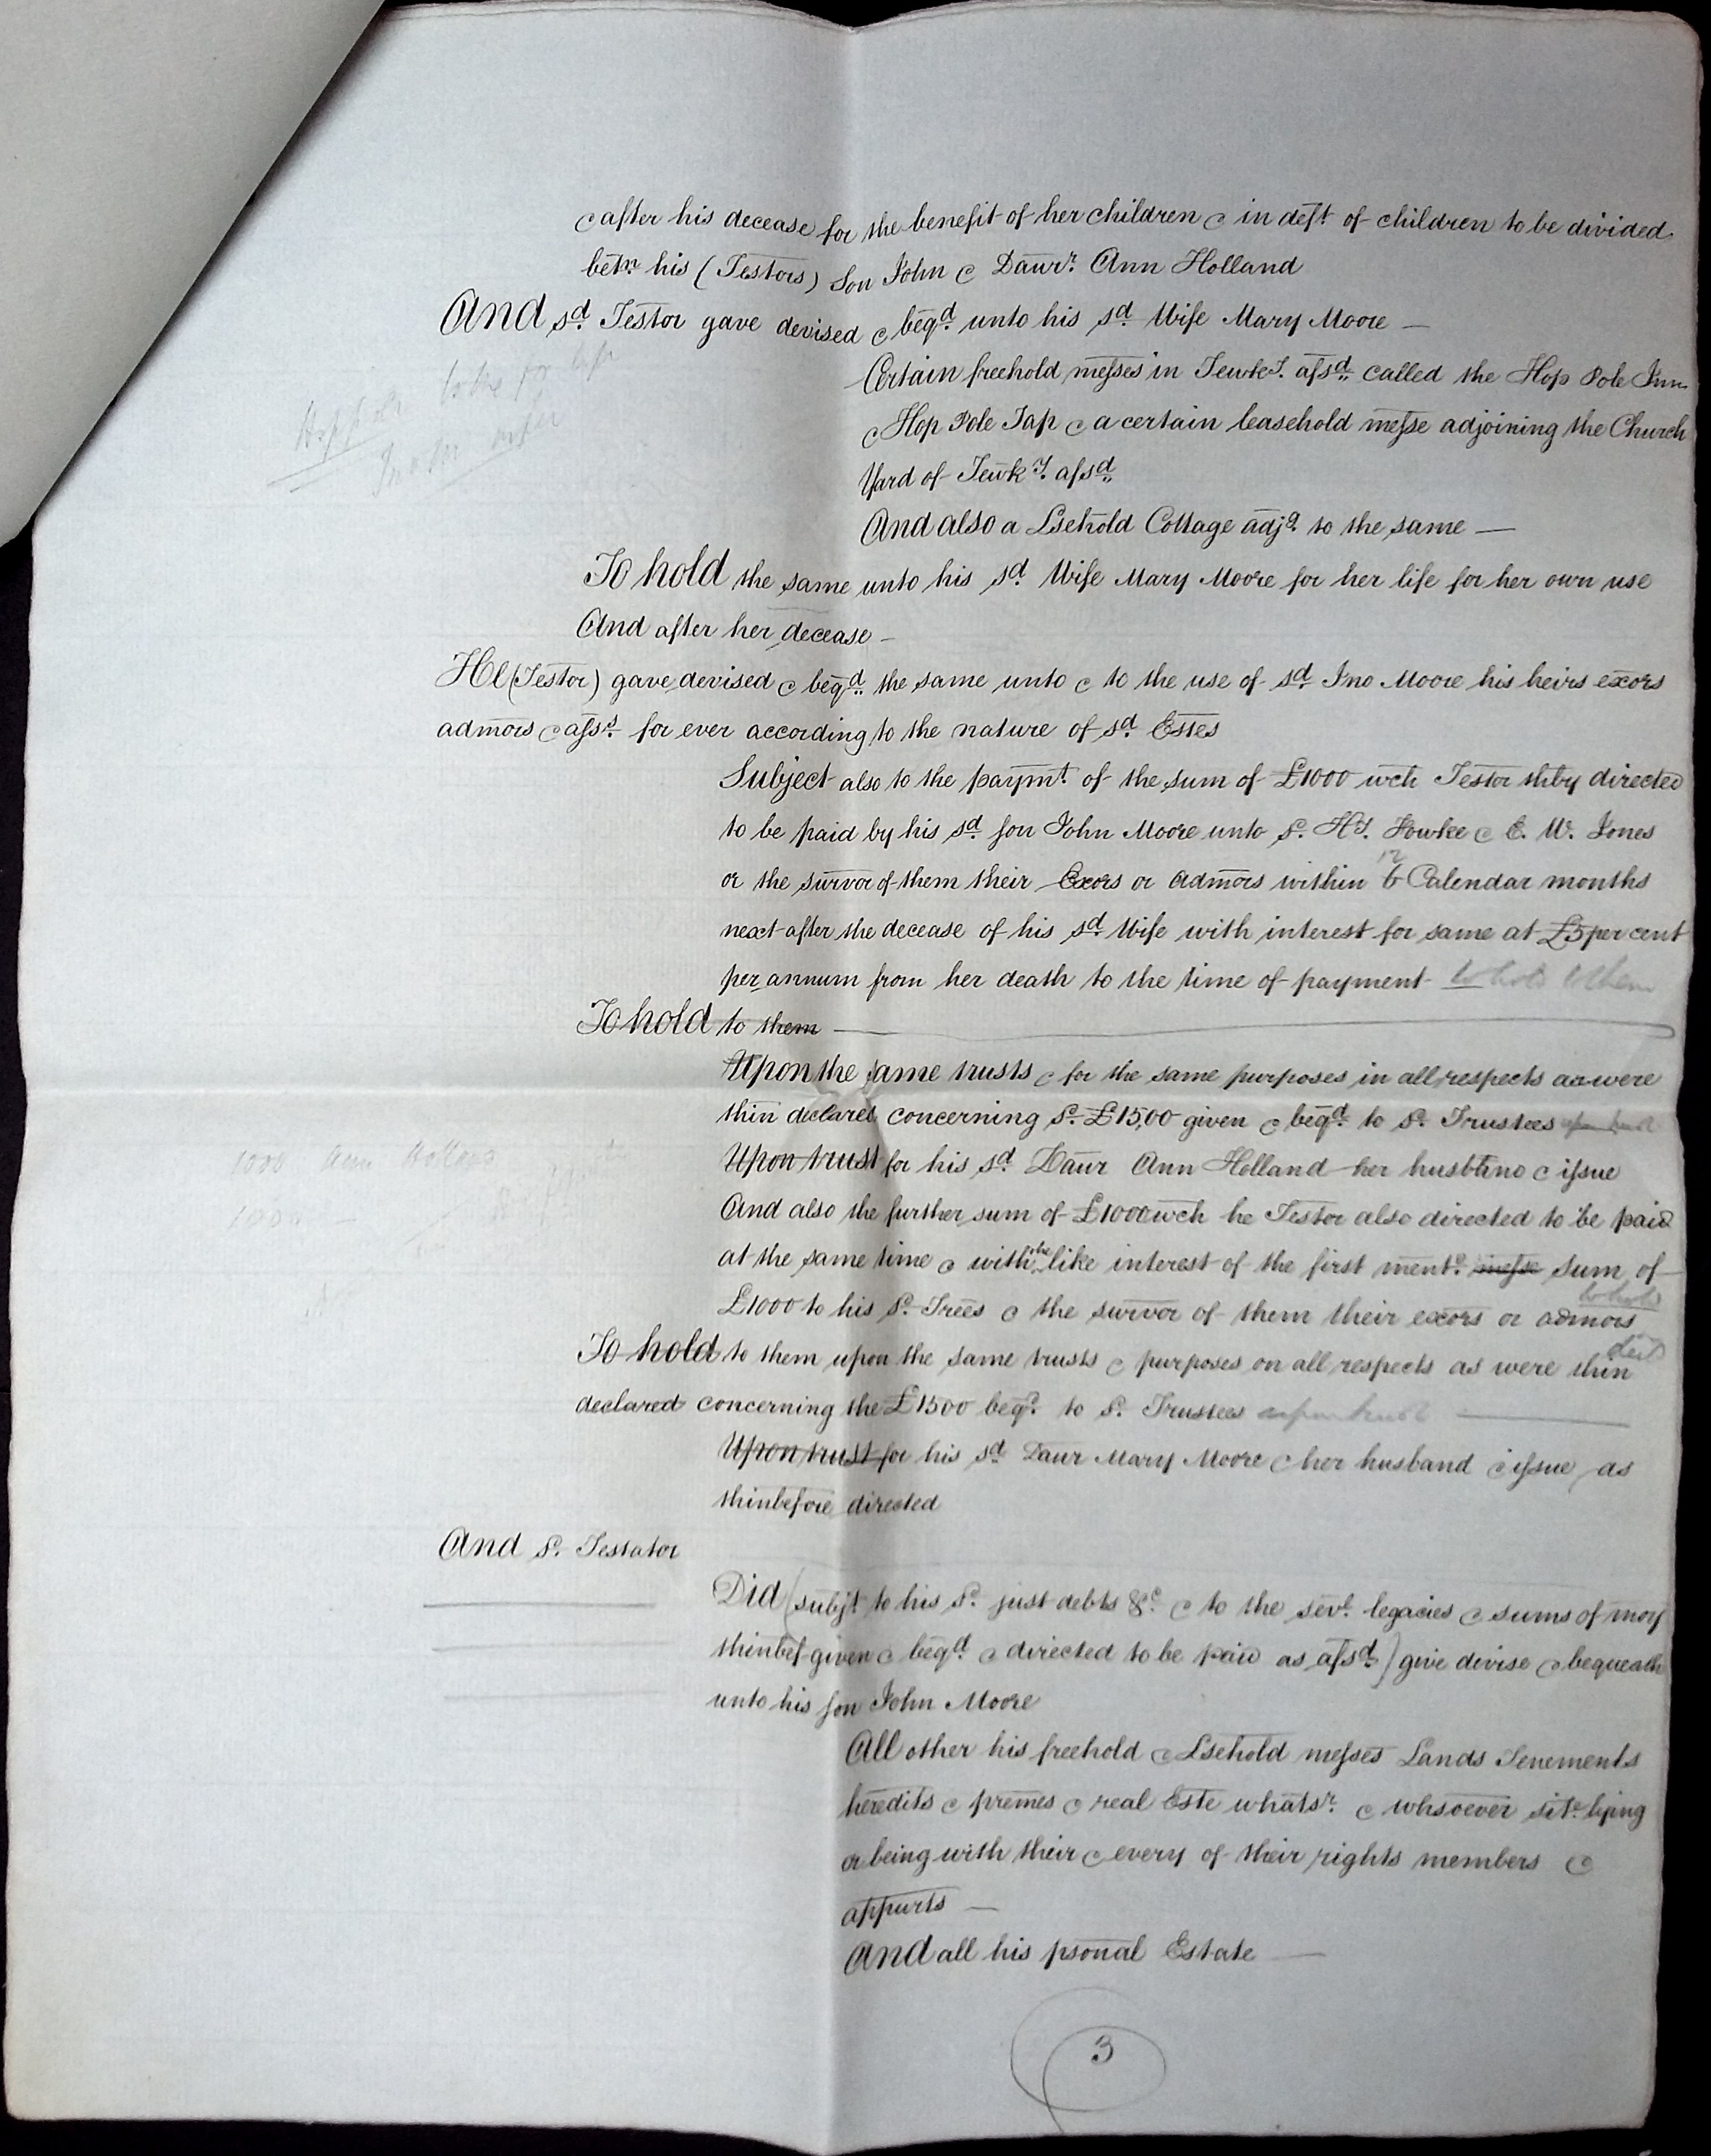 & after his decease for the benefit of her children & in deft. of children to be divided
betn. his (Testors) Son John & Daur. Ann Holland
And sd. Testor gave devised & beqd. unto his sd. Wife Mary Moore —
to be for life
Certain freehold messes in Tewky. afsd. called the Hop Pole Inn
& Hop Pole Tap & a certain leasehold messe adjoining the Church
Yard of Tewky. afsd.
And also a Lsehold Cottage adjg. to the same —
To hold the same unto his sd. Wife Mary Moore for her life for her own use
And after her decease —
He (Testor) gave devised & beqd. the same unto & to the use of sd. Jno Moore his heirs excors
admors & asss. for ever according to the nature of sd. Estes
Subject also to the paymt. of the sum of £1000 wch Testor thby directed
to be paid by his sd. son John Moore unto sd. Hy. Fowke & E. W. Jones
or the survor of them their Excors or Admors within 6 12 Calendar months
next after the decease of his sd. Wife with interest for same at £5 per cent
per annum from her death to the time of payment to hold to them
To hold to them
Upon the same trusts & for the same purposes in all respects as were
thin declared concerning sd. £1500 given & beqd. to sd. Trustees upon trust
Upon trust for his sd. Daur Ann Holland her husband & issue
1000 Ann Holland
And also the further sum of £1000 wch he Testor also directed to be paid
1000
at the same time & with the like interest of the first mentd. messe Sum of
£1000 to his sd. Trees & the survor of them their excors or admors
to hold
To hold to them upon the same trusts & purposes on all respects as were thin
declared concerning the £1500 beqd. to sd. Trustees upon trust
Upon trust for his sd. Daur Mary Moore & her husband & issue as
thinbefore directed
And sd. Testator
Did (subjt. to his sd. just debts &c. & to the sevl. legacies & sums of moy
thinbef given & beqd. & directed to be paid as afsd.) give devise & bequeath
unto his son John Moore
All other his freehold & Lsehold messes Lands Tenements
heredits & premes & real Este whatsr. & whsoever site. lying
or being with their & every of their rights members &
appurts —
And all his psonal Estate —
3